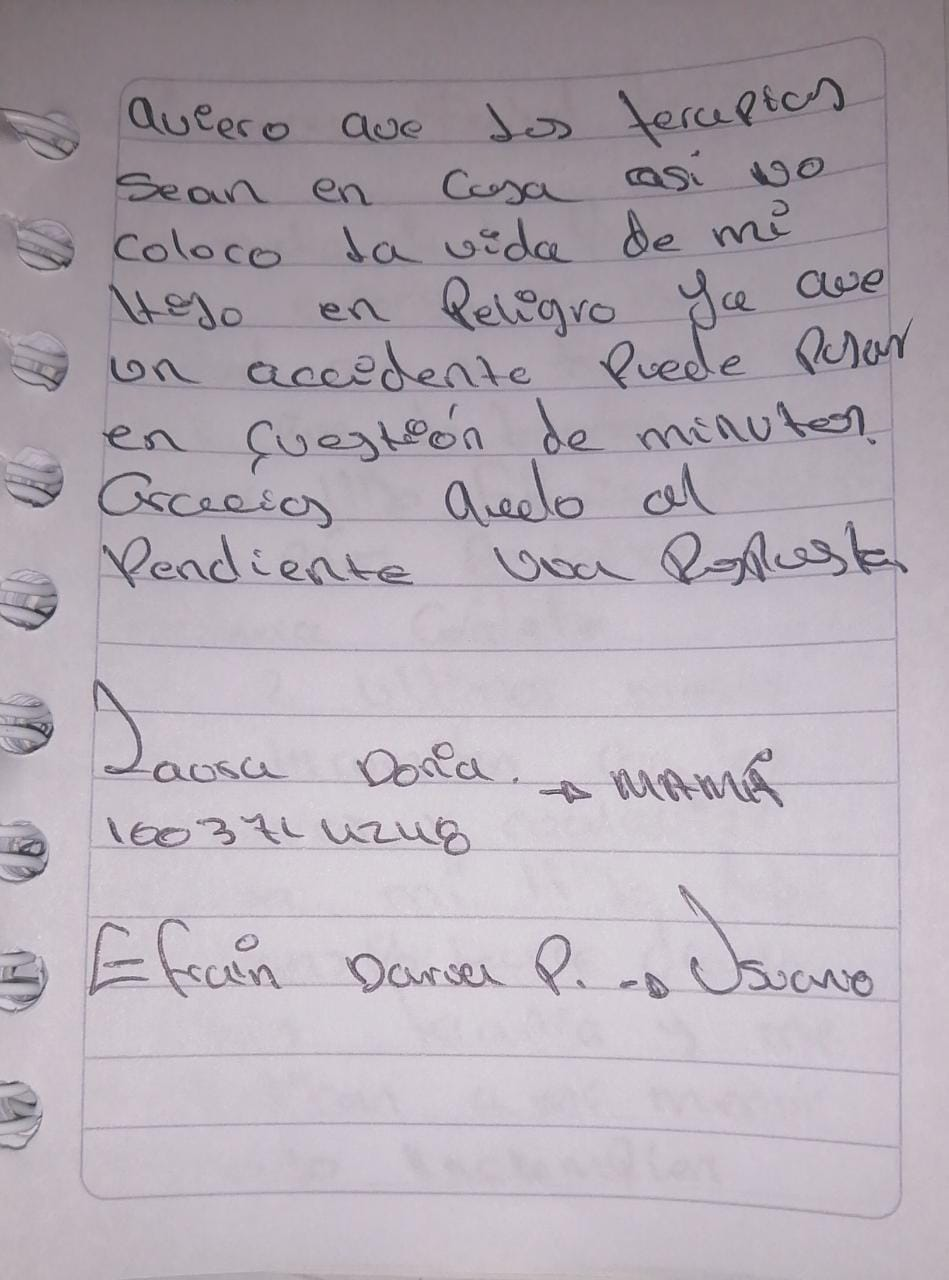 Quiero que las terapias
sean en casa así no
coloco la vida de mi
Hijo en Peligro Ya que
un accidente Puede Pasar
en cuestión de minutos.
Gracias Quedo al
Pendiente una Respuesta
Doria. → MAMÁ
Efrain P. → Usuario